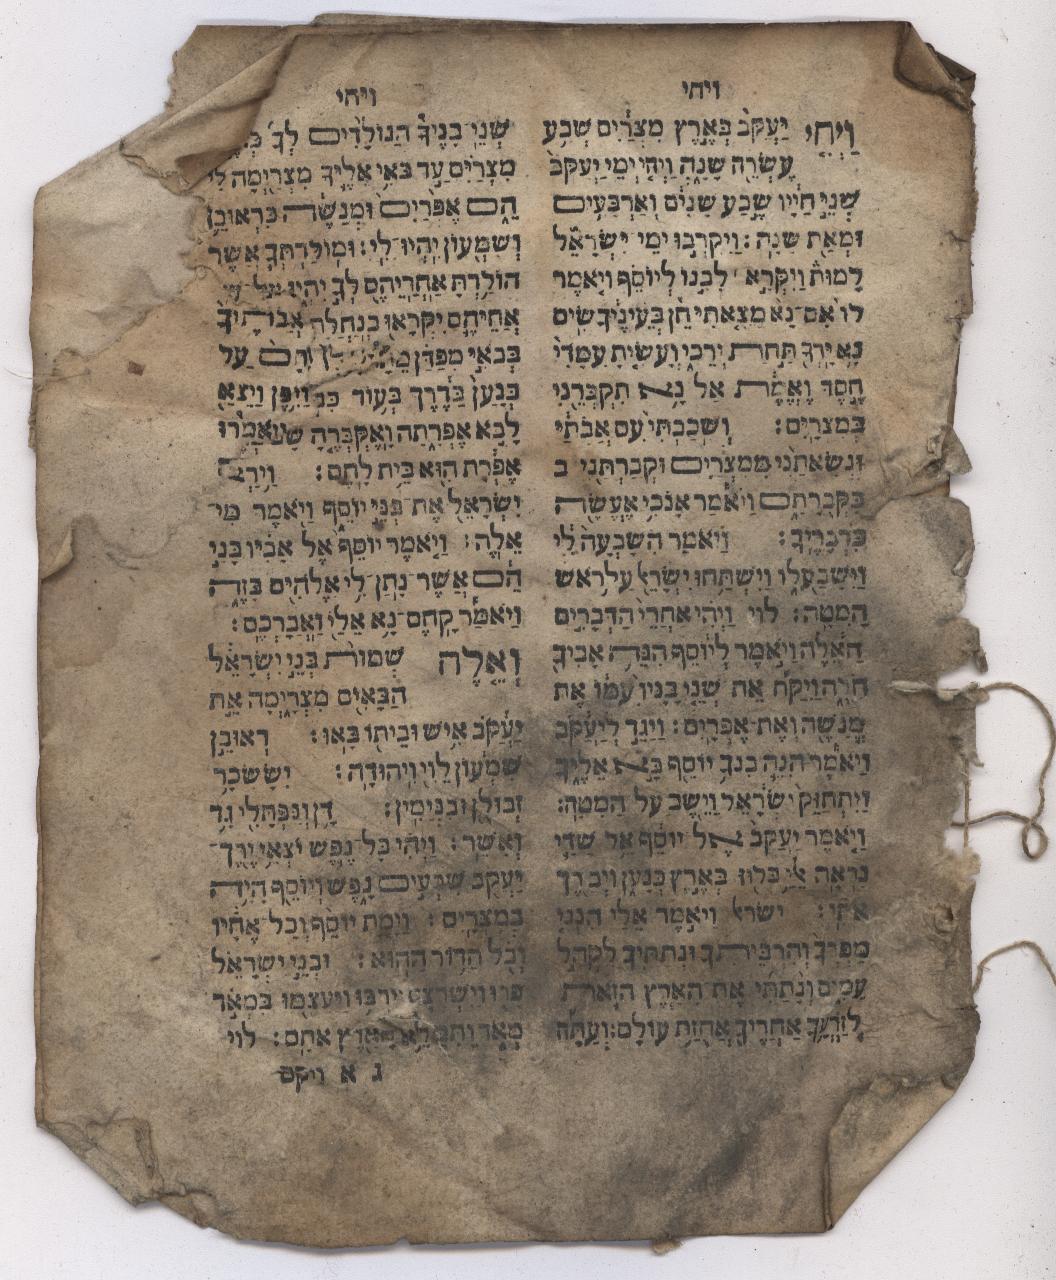 ויחי
וַיְחִי יַעֲקֹב בְּאֶרֶץ מִצְרַיִם שְׁבַע
עֶשְׂרֵה שָׁנָה וַיְהִי יְמֵי יַעֲקֹב
שְׁנֵי חַיָּיו שֶׁבַע שָׁנִים וְאַרְבָּעִים
וּמְאַת שָׁנָה: וַיִּקְרְבוּ יְמֵי יִשְׂרָאֵל
לָמוּת וַיִּקְרָא לִבְנוֹ לְיוֹסֵף וַיֹּאמֶר
לוֹ אִם־נָא מָצָאתִי חֵן בְּעֵינֶיךָ שִׂים
נָא יָדְךָ תַּחַת יְרֵכִי וְעָשִׂיתָ עִמָּדִי
חֶסֶד וֶאֱמֶת אַל נָא תִקְבְּרֵנִי
בְּמִצְרָיִם: וְשָׁכַבְתִּי עִם אֲבֹתַי
וּנְשָׂאתַנִי מִמִּצְרַיִם וּקְבַרְתַּנִי ב
בִּקְבֻרָתָם וַיֹּאמַר אָנֹכִי אֶעֱשֶׂה
כִדְבָרֶיךָ: וַיֹּאמֶר הִשָּׁבְעָה לִי
וַיִּשָּׁבַע לוֹ וַיִּשְׁתַּחוּ יִשְׂרָאֵל עַל רֹאשׁ
הַמִּטָּה: לוי וַיְהִי אַחֲרֵי הַדְּבָרִים
הָאֵלֶּה וַיֹּאמֶר לְיוֹסֵף הִנֵּה אָבִיךָ
חֹלֶה וַיִּקַּח אֶת שְׁנֵי בָנָיו עִמּוֹ אֶת
מְנַשֶּׁה וְאֶת־אֶפְרָיִם: וַיַּגֵּד לְיַעֲקֹב
וַיֹּאמֶר הִנֵּה בִּנְךָ יוֹסֵף בָּא אֵלֶיךָ
וַיִּתְחַזֵּק יִשְׂרָאֵל וַיֵּשֶׁב עַל הַמִּטָּה:
וַיֹּאמֶר יַעֲקֹב אֶל יוֹסֵף אֵל שַׁדַּי
נִרְאָה אֵלַי בְּלוּז בְּאֶרֶץ כְּנָעַן וַיְבָרֶךְ
אֹתִי: ישראל וַיֹּאמֶר אֵלַי הִנְנִי
מַפְרְךָ וְהִרְבִּיתִךָ וּנְתַתִּיךָ לִקְהַל
עַמִּים וְנָתַתִּי אֶת־הָאָרֶץ הַזֹּאת
לְזַרְעֲךָ אַחֲרֶיךָ אֲחֻזַּת עוֹלָם: וְעַתָּה
ויחי
שְׁנֵי־בָנֶיךָ הַנּוֹלָדִים לְךָ
מִצְרַיִם עַד בֹּאִי אֵלֶיךָ מִצְרַיְמָה לִי
הֵם אֶפְרַיִם וּמְנַשֶּׁה כִּרְאוּבֵן
וְשִׁמְעוֹן יִהְיוּ לִי: וּמוֹלַדְתְּךָ אֲשֶׁר
הוֹלַדְתָּ אַחֲרֵיהֶם לְךָ יִהְיוּ
אֲחֵיהֶם יִקָּרְאוּ בְּנַחֲלָה אבותיך
בְּבֹאִי מִפַּדָּן וְתָם עַל
כְּנַעַן בַּדֶּרֶךְ בְּעוֹד כִּבְ וַיִּפֶן וַיֵּצֵא
לָבֹא אֶפְרָתָה וָאֶקְבְּרֶהָ שָּׁ וַיֹּאמְרוּ
אֶפְרָת הִוא בֵּית לָחֶם: וַיַּרְא
יִשְׂרָאֵל אֶת בְּנֵי יוֹסֵף וַיֹּאמֶר מִי־
אֵלֶּה: וַיֹּאמֶר יוֹסֵף אֶל אָבִיו בָּנַי
הֵם אֲשֶׁר־נָתַן־לִי אֱלֹהִים בָּזֶה
וַיֹּאמַר קָחֶם־נָא אֵלַי וַאֲבָרְכֵם:
וְאֵלֶּה שְׁמוֹת בְּנֵי יִשְׂרָאֵל
הַבָּאִים מִצְרַיְמָה אֵת
יַעֲקֹב אִישׁ וּבֵיתוֹ בָּאוּ: רְאוּבֵן
שִׁמְעוֹן לֵוִי וִיהוּדָה: יִשָּׂשכָר
זְבוּלֻן וּבִנְיָמִין: דָּן וְנַפְתָּלִי גָּד
וְאָשֵׁר: וַיְהִי כָּל־נֶפֶשׁ יֹצְאֵי יֶרֶךְ־
יַעֲקֹב שִׁבְעִים נָפֶשׁ וְיוֹסֵף הָיָה
בְמִצְרָיִם: וַיָּמָת יוֹסֵף וְכָל אֶחָיו
וְכֹל הַדּוֹר הַהוּא: וּבְנֵי יִשְׂרָאֵל
פָּרוּ וַיִּשְׁרְצוּ וַיִּרְבּוּ וַיַּעַצְמוּ בִּמְאֹד
מְאֹד וַתִּמָּלֵא הָאָרֶץ אֹתָם: לוי
ג א ויקם